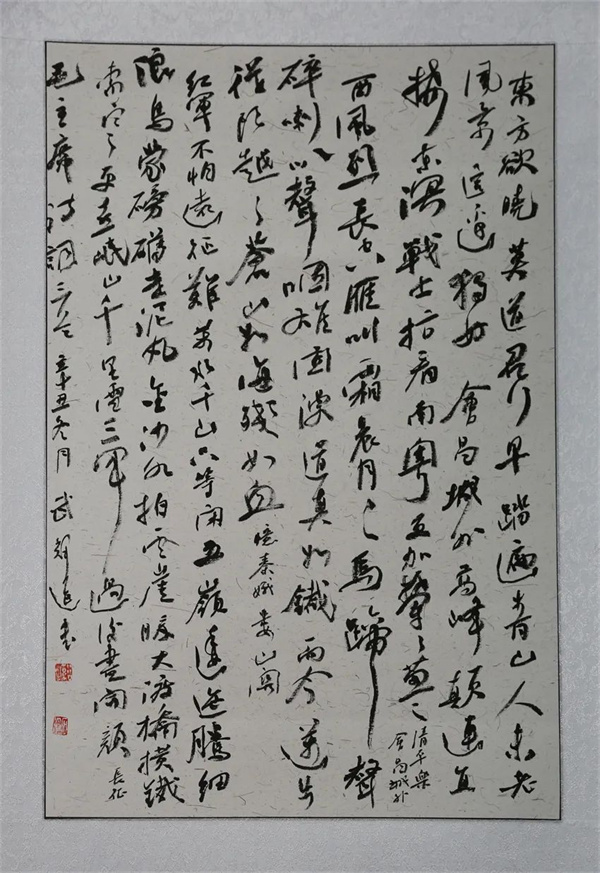 東方欲曉莫道君行早踏遍青山人未老
風景這邊獨好會昌城外高峰顛連直
接東溟戰士指看南粵更加鬱々蔥々
清平樂
會昌城外
西風烈長空雁叫霜晨月々馬蹄聲
碎喇叭聲咽雄關漫道真如鐵而今邁步
從頭越々蒼山如海殘如血
憶秦娥 婁山關
紅軍不怕遠征難萬水千山只等閑五嶺逶迤騰細
浪烏蒙磅礴走泥丸金沙水拍雲崖暖大渡橋橫鐵
索寒更喜岷山千里雪三軍過後盡開顏
長征
毛主席詩詞三首 辛丑冬月 武進書